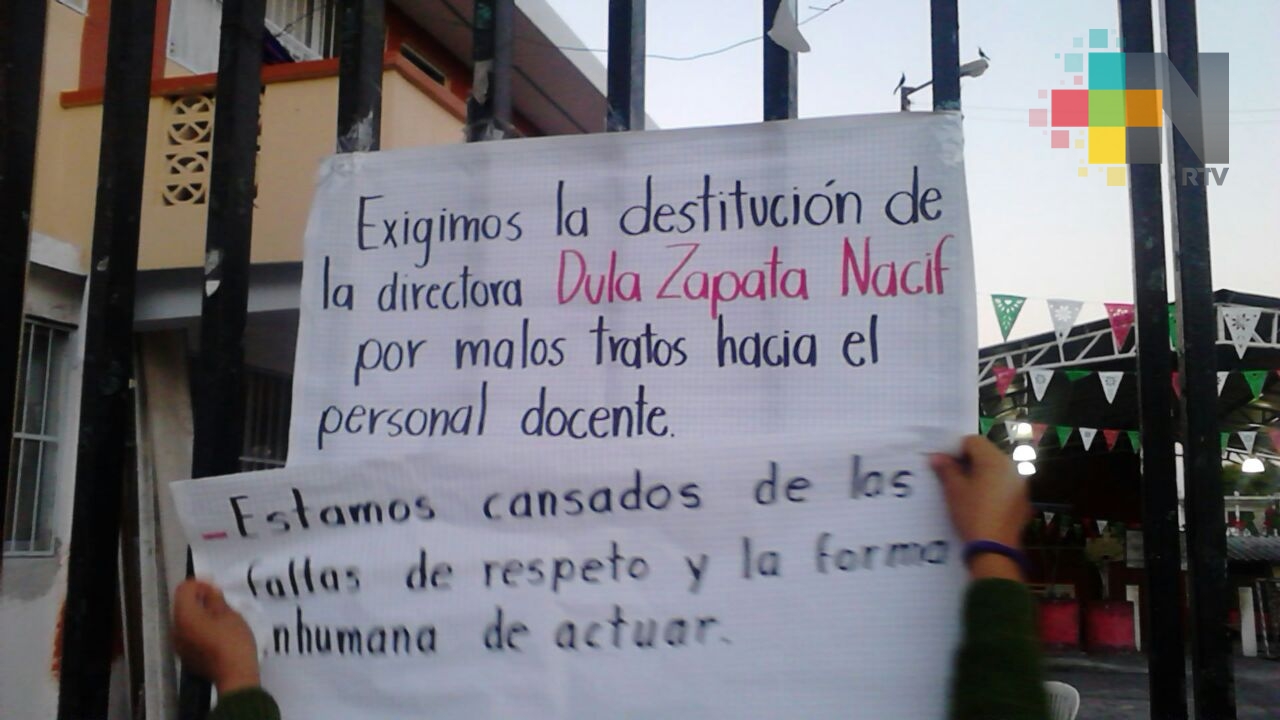 Exigimos la destitución de
la directora Dula Zapata Nacif
por malos tratos hacia el
personal docente.
Estamos cansados de las
faltas de respeto y la forma
inhumana de actuar.
N
RTV